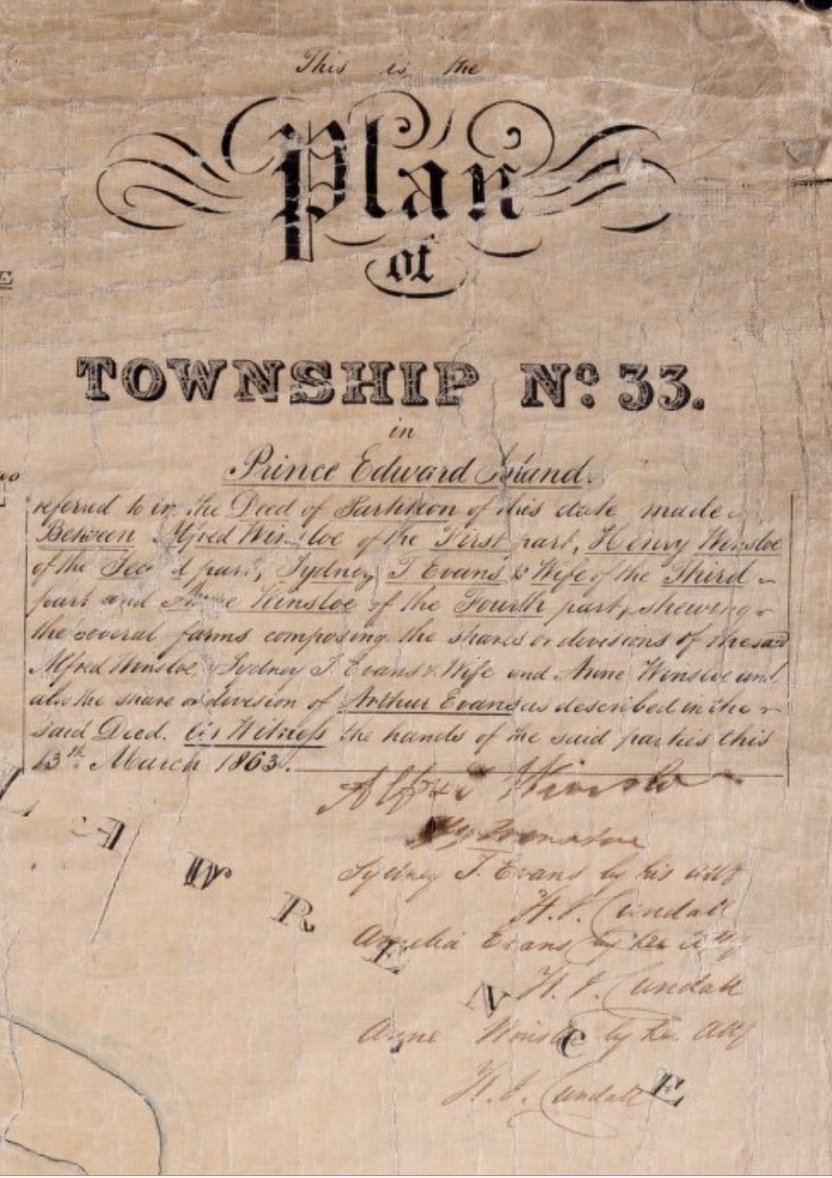 This is the
Plan
of
TOWNSHIP No. 33.
in
Prince Edward Island.
referred to in the Deed of Partition of this date made
Between Alfred Winsloe of the First part, Henry Winsloe
of the Second part, Sydney T Evans & Wife of the Third
part and Anne Winsloe of the Fourth part, shewing
the several farms composing the shares or divisions of the said
Alfred Winsloe, Sydney T. Evans & Wife and Anne Winsloe and
also the share or division of Arthur Evans as described in the
said Deed. As Witness the hands of the said parties this
13th March 1863.
Alfred Winsloe
Hy Winsloe
Sydney T. Evans by his atty
H. J. Cundall
Amelia Evans by her atty
H. J. Cundall
Anne Winsloe by her atty
H. J. Cundall
A W R E N C E
E